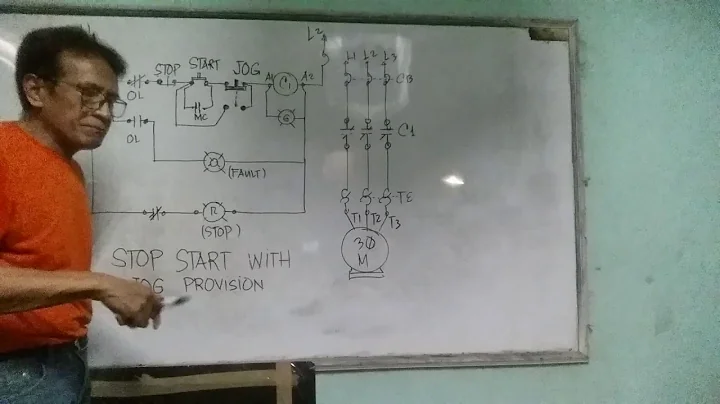 L2
L1 L2 L3
STOP START JOG A1 C1 A2
OL
MC
G
CB
OL
C1
(FAULT)
TE
R
T1 T2 T3
(STOP)
3Ø
M
STOP START WITH
JOG PROVISION